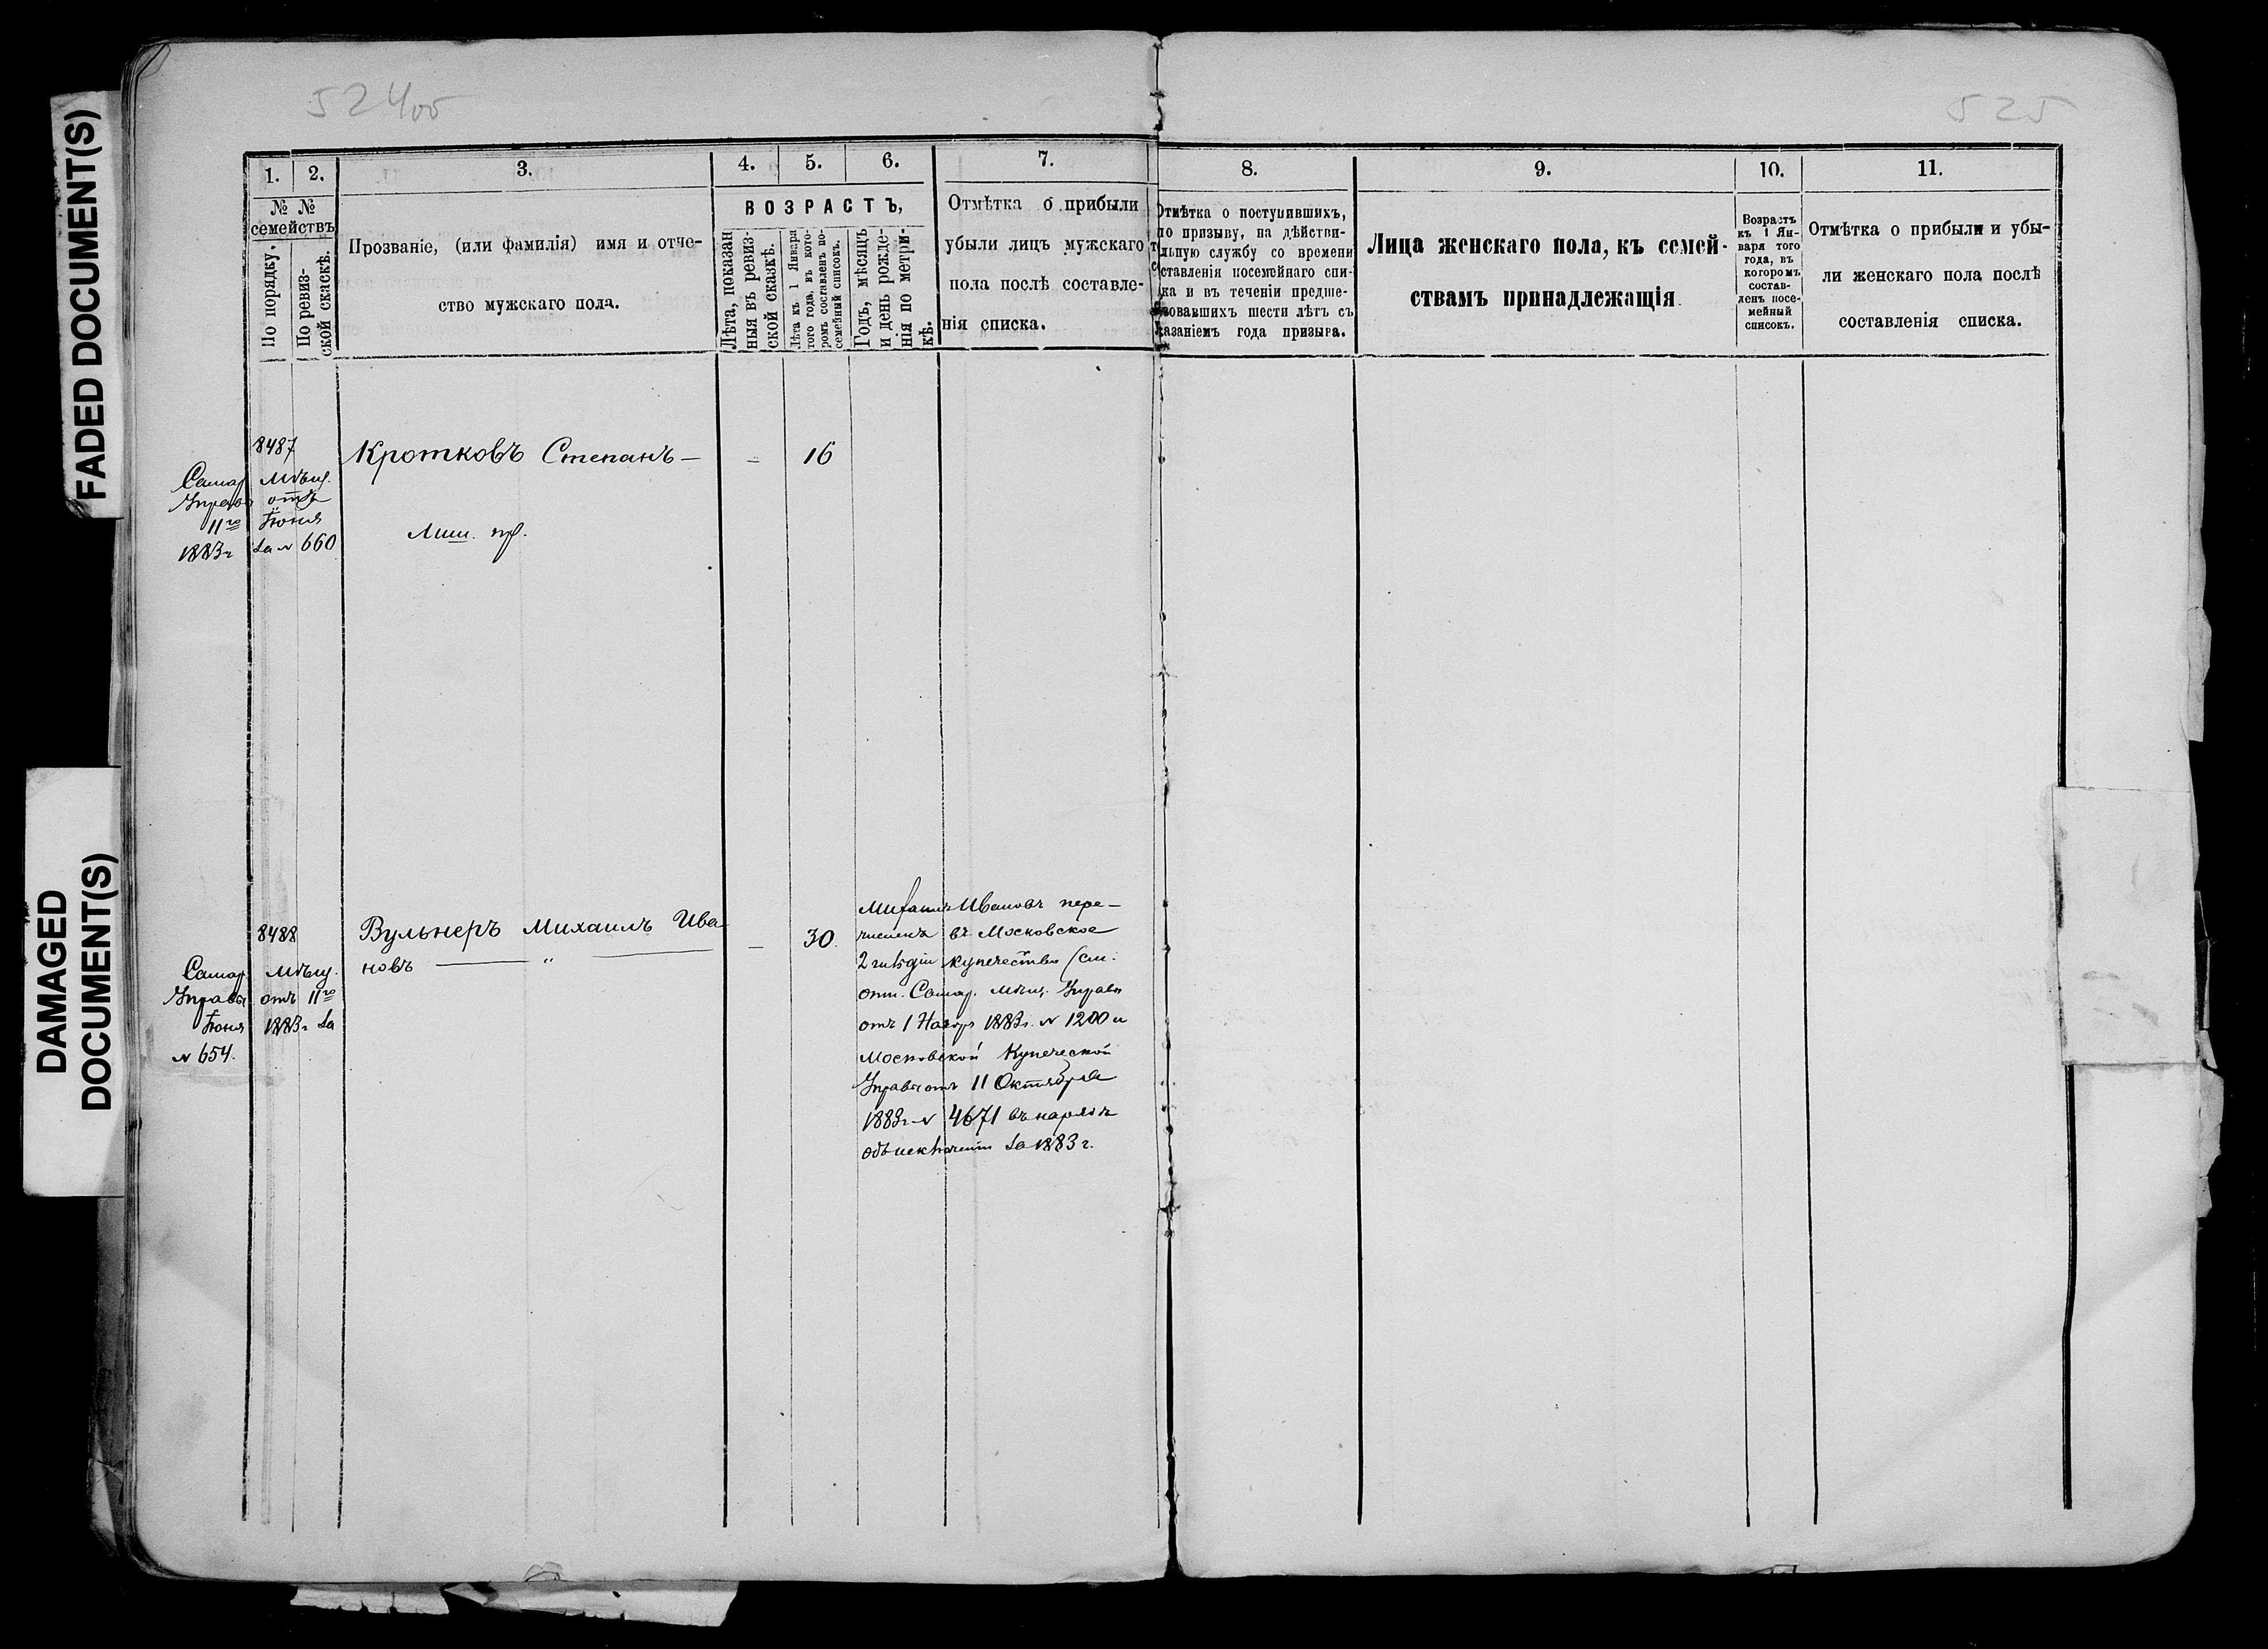 524 об
525
FADED DOCUMENT(S)
DAMAGED
DOCUMENT(S)
1. 2. 3. 4. 5. 6. 7. 8. 9. 10. 11.
№ №
семействъ
По порядку.
По ревиз-
ской скаскѣ.
Прозваніе, (или фамилія) имя и отче-
ство мужскаго пола.
ВОЗРАСТЪ,
Лѣта, показан
ныя въ ревиз-
ской сказкѣ.
Лѣта къ 1 Января
того года, въ кото-
ромъ составленъ по-
семейный списокъ.
Годъ, мѣсяцъ
и день рожде-
нія по метри-
кѣ.
Отмѣтка о прибыли
убыли лицъ мужскаго
пола послѣ составле-
нія списка.
Отмѣтка о поступившихъ,
по призыву, на дѣйстви-
льную службу со времени
ставленія посемейнаго спи-
ка и въ теченіи предше-
вовавшихъ шести лѣтъ съ
казаніемъ года призыва.
Лица женскаго пола, къ семей-
ствамъ принадлежащія
Возрастъ
къ 1 Ян-
варя того
года, въ
которомъ
состав-
ленъ посе-
мейный
списокъ.
Отмѣтка о прибыли и убы-
ли женскаго пола послѣ
составленія списка.
8487
Кротковъ Степанъ — – 16
Самар. Мѣщ.
Управы отъ
11го Іюня
1883 г за № 660
8488
Вульнеръ Михаилъ Ива
новъ — " — – 30.
Самар. Мѣщ.
Управы отъ 11го
Іюня 1883 г за
№ 654.
Михаилъ Ивановъ пере-
численъ въ Московское
2 гильдіи купечество (см.
отн. Самар. Мѣщ. Управы
отъ 1 Ноябр 1883 г. № 1200 и
Московской Купеческой
Управы отъ 11 Октября
1883 г. № 4671 въ нарядѣ
объ исключеніи за 1883 г.